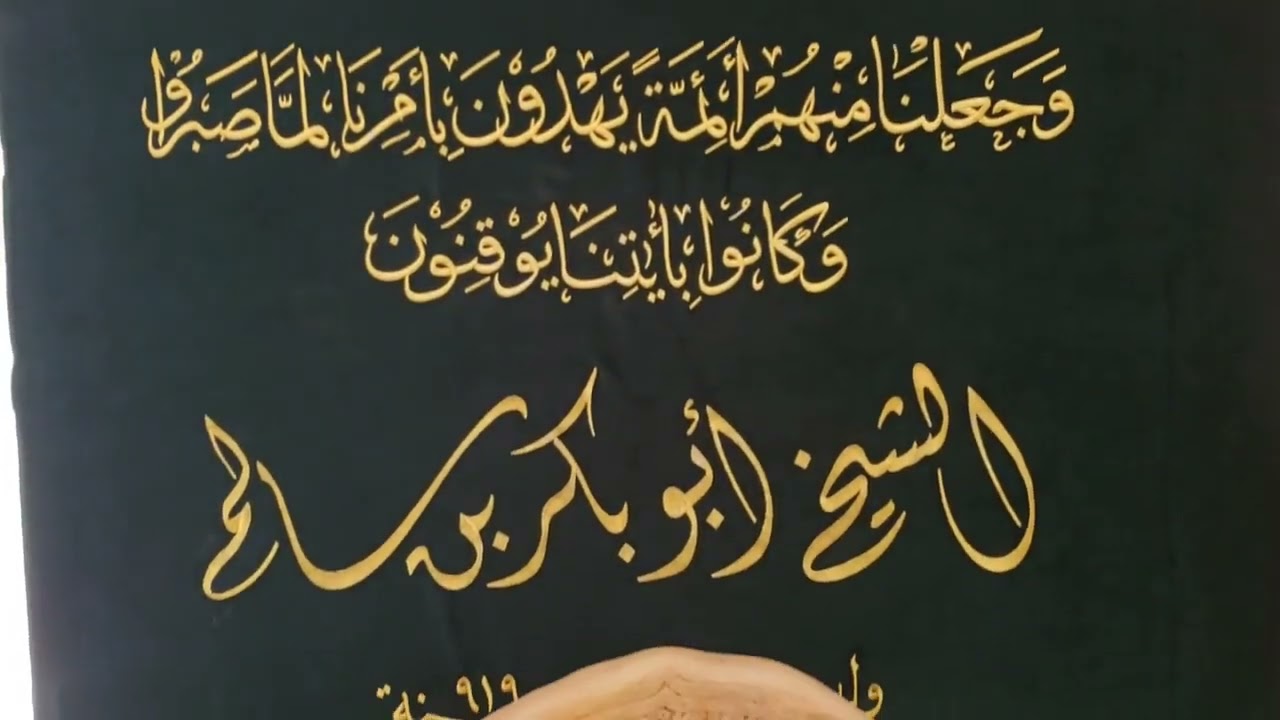 وَجَعَلْنَا مِنْهُمْ أَئِمَّةً يَهْدُوْنَ بِأَمْرِنَا لَمَّا صَبَرُوْا
وَكَانُوْا بِأٰيٰتِنَا يُوْقِنُوْنَ
الشيخ أبو بكر بن سالم
٩١٩